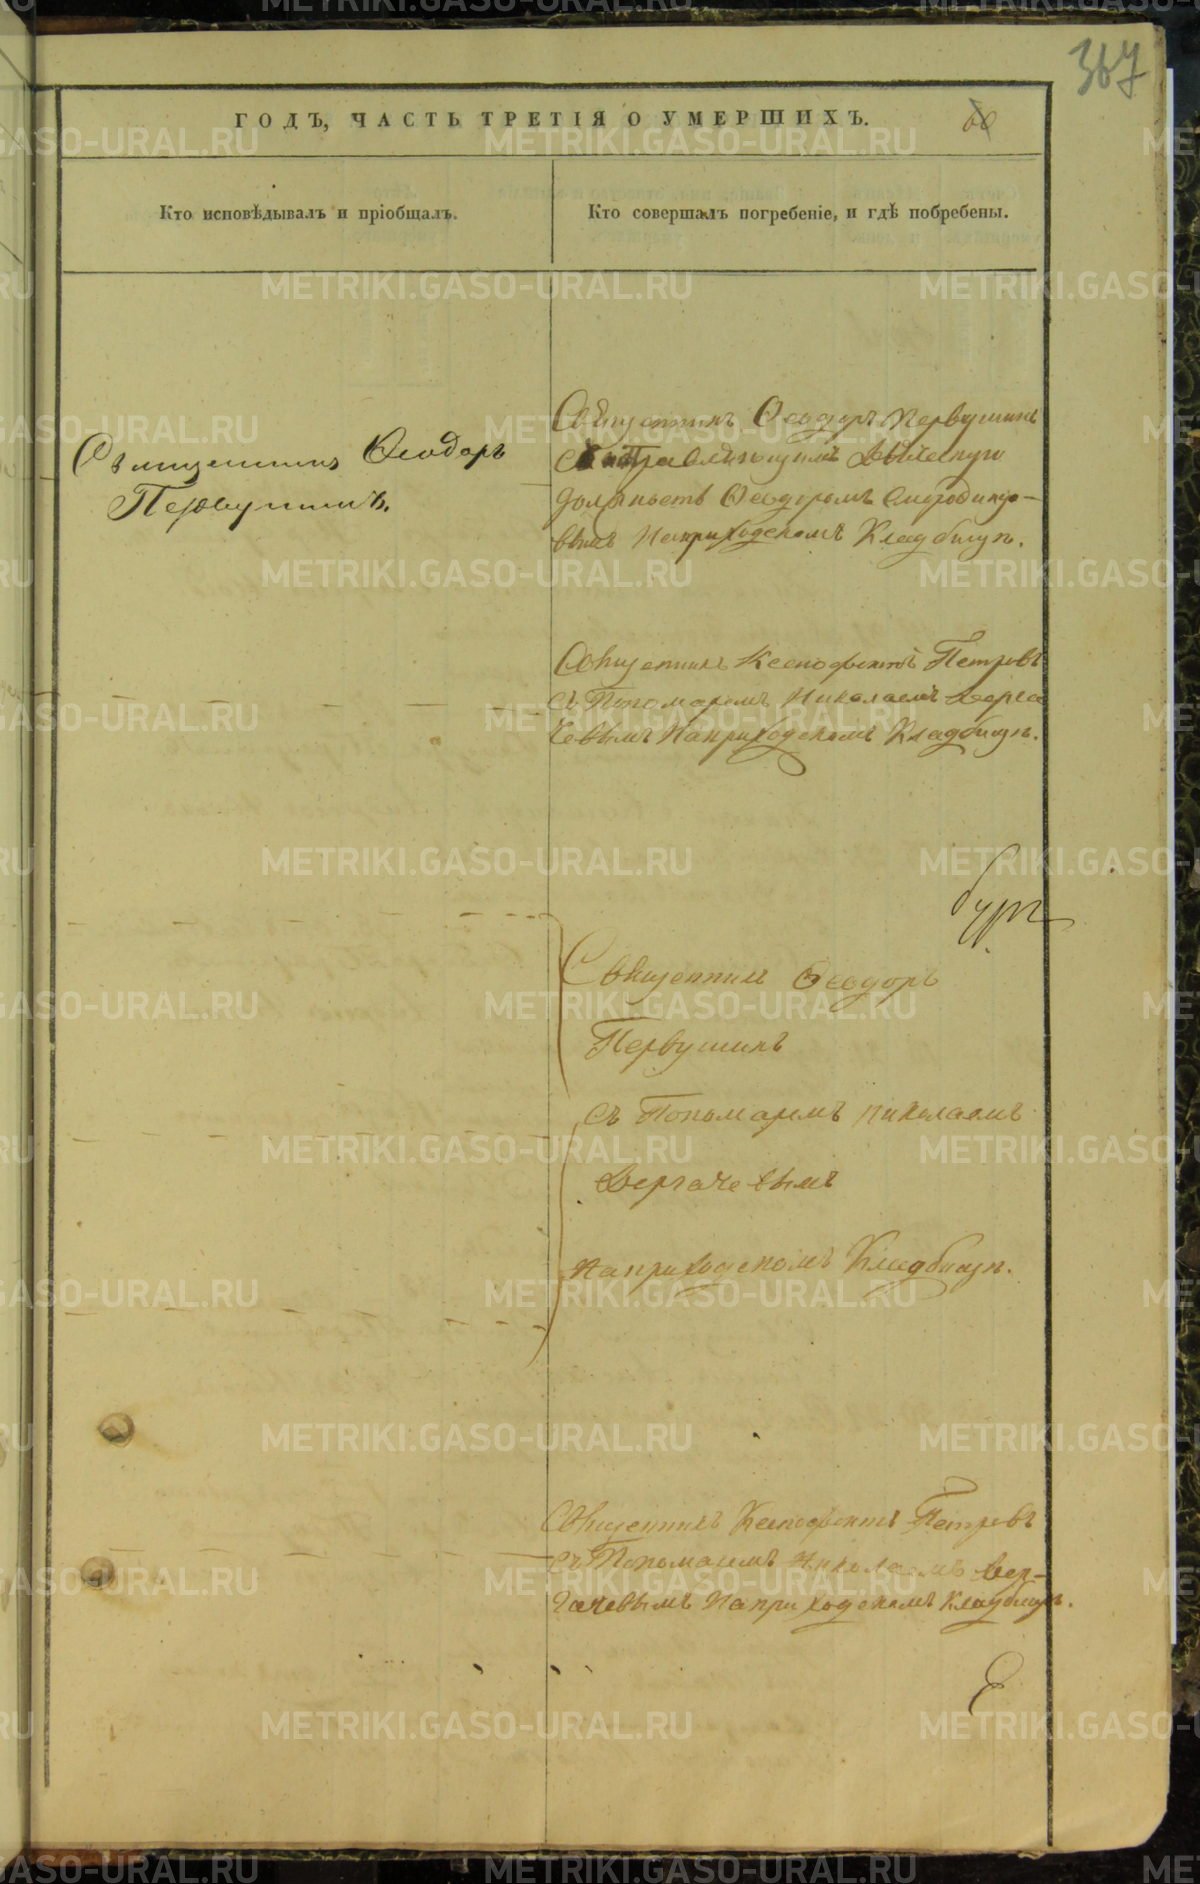 367
ГОДЪ, ЧАСТЬ ТРЕТІЯ О УМЕРШИХЪ.
60
Кто исповѣдывалъ и пріобщалъ.
Кто совершалъ погребеніе, и гдѣ побребены.
Священникъ Ѳеодоръ
Первушинъ.
Священникъ Ѳеодоръ Первушинъ
съ Исправляющимъ
должность Ѳеодоромъ
вымъ На приходскомъ Кладбищѣ.
Священникъ Ксенофонтъ Петровъ
съ Пономаремъ Николаемъ Дерга
чевымъ На приходскомъ Кладбищѣ.
Священникъ Ѳеодоръ
Первушинъ
съ Пономаремъ Николаемъ
Дергачевымъ
На приходскомъ Кладбищѣ.
Священникъ Ксенофонтъ Петровъ
съ Пономаремъ Николаемъ Дер-
гачевымъ На приходскомъ Кладбищѣ.
METRIKI.GASO-URAL.RU